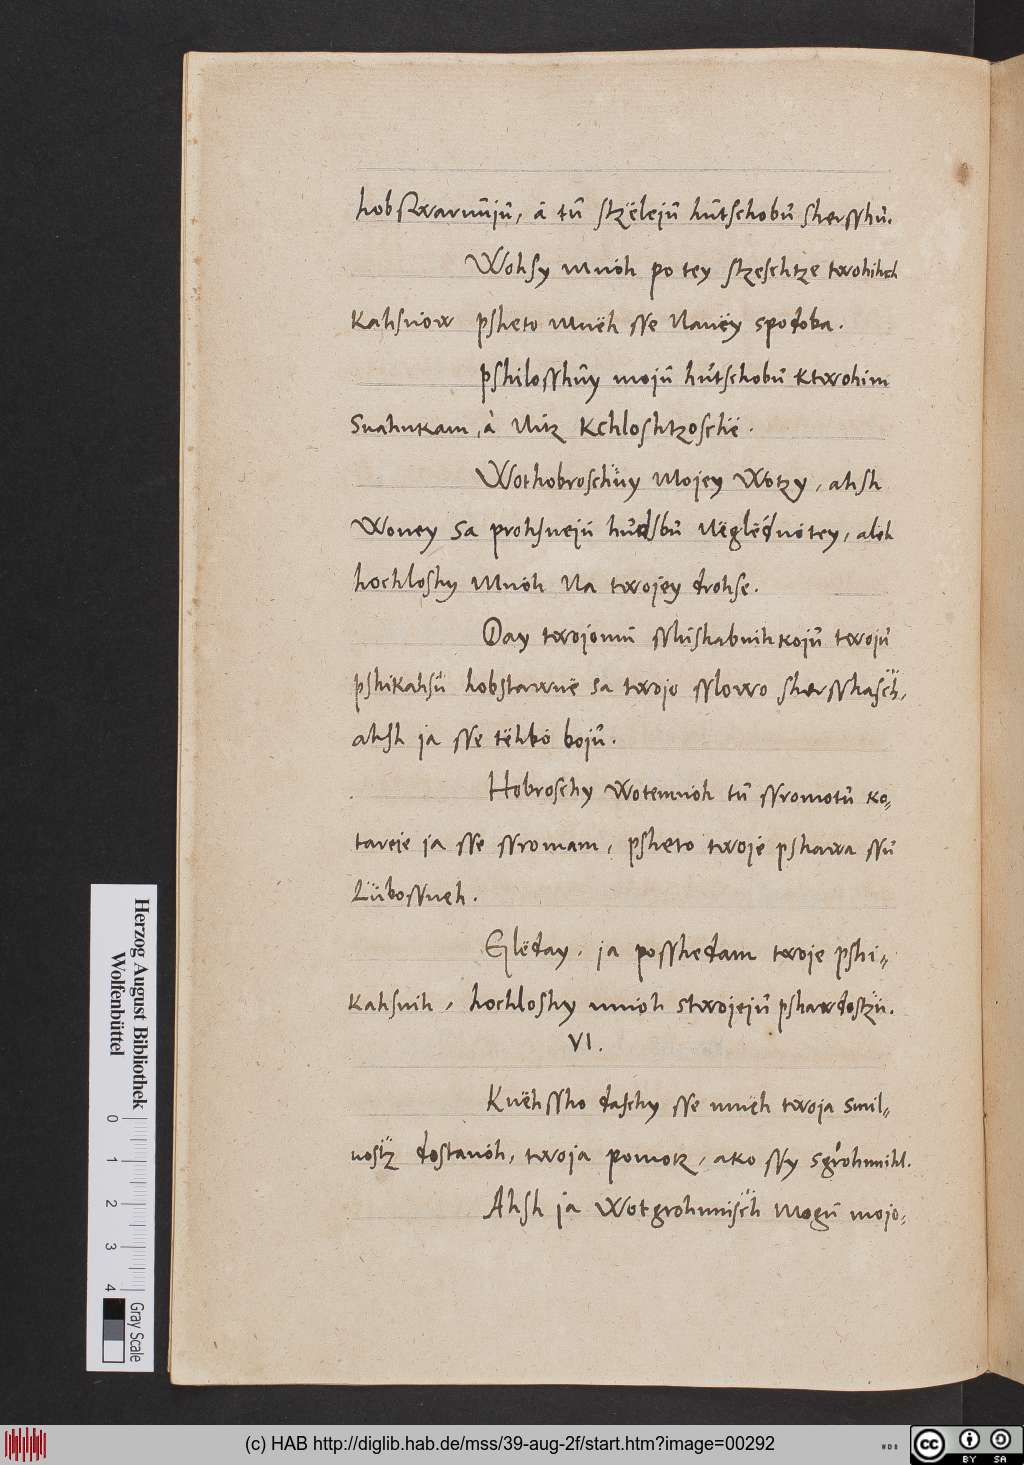 hobßwarnuju, á tu stzëleju hutschobu shersshu.
Wohsy mnóh po tey stzeschtze twohihch
Kahsnów psheto mnëh sse Nanëy spodoba.
Pshilosshuy moju hutschobu Ktwohim
Snahnkam, à Nitz Kchloshtzoschë.
Wothobroschuy Mojey Wotzy, ahsh
Woney sa prohsneju hudsbu Nëglëdnótey, aleh
hochloshy Mnóh Na twojey drohse.
Day twojomu sslushabnihkoju twoju
pshikahsn hobstawnë sa twojo sslowo shersshasch,
ahsh ja sse tëhbó boju.
Hobroschy wotemnóh tu ssromotu ko=
tareje ja sse ssromam, psheto twoje pshawa ssu
Lubossneh.
Glëday, ja posshedam twoje pshi=
Kahsnih, hochloshy mnóh stwojeju pshawdostzu.
VI.
Knëhssho daschy sse mnëh twoja smil=
nostz dostanóh, twoja pomotz, ako ssy sgrohnnihl.
Ahsh ja Wotgrohnnisch Mogu mojo=
Herzog August Bibliothek
Wolfenbüttel
0 1 2 3 4
Gray Scale
(c) HAB http://diglib.hab.de/mss/39-aug-2f/start.htm?image=00292
WDB
cc
BY SA